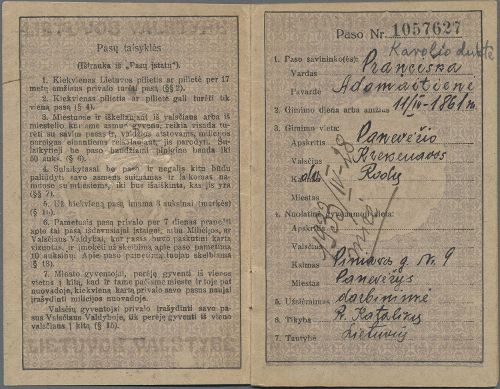 Pasų taisyklės
(Ištrauka iš „Pasų įstatų“)
1. Kiekvienas Lietuvos pilietis ar pilietė per 17
metų amžiaus privalo turėti pasą (§§ 2).
2. Kiekvienas pilietis ar pilietė gali turėti tik
vieną pasą (§ 4).
3. Išvykstant ir iškeliaujant iš valsčiaus arba iš
miestelio kuriame asmuo gyvena, reikia visada tu-
rėti su savim pasas ir, valdžios atstovams, milicijos
pareigas einantiems reikalaujant, jis parodyti. Su-
laikytieji be paso baudžiami pinigine bauda iki
50 auks. (§ 6).
4. Sulaikytasai be paso ir negalįs kitu būdu
paliudyti savo asmens sulaikomas ir laikomas na-
muose sumiestiems, iki bus išaiškinta, kas jis yra
(§ 7).
5. Už kiekvieną pasą imama 3 auksinai (markės)
(§ 15).
6. Pametusis pasą privalo per 7 dienas pranešti
apie tai pasą išdavusiajai įstaigai, arba Milicijos, ar
Valsčiaus Valdybai, kur pasas buvo paskutinį kartą
vizuotas, ir įmokėti už skelbimą apie paso pametimą,
10 auksinų. Apie paso pametimą tuojau skelbiama
(§ 18).
7. Miesto gyventojai, perėję gyventi iš vieros
vietos į kitą, kad ir tame pačiame mieste ir toje pat
nuovadoje, kiekvieną kartą, privalo savo pasus naujai
įrašydinti milicijos nuovadoje.
Valsčių gyventojai privalo įrašydinti savo pa-
sus Valsčiaus Valdyboje, tik perėję gyventi iš vieno
valsčiaus į kitą (§ 15).
Paso Nr. 1057627
Karolio duktė
1. Paso savininko(ės):
Vardas Pranciška
Pavardė Adomaitienė
2. Gimimo diena arba amžius 11/IV-1861 m.
3. Gimimo vieta:
Apskritis Panevėžio
Valsčius Krekenavos
Kaimas Rodų
1933-IV-28
4. Nuolatinė gyvenamoji vieta:
Apskritis
Valsčius
Kaimas g. N. 9
Miestas Panevėžys
5. Užsiėmimas darbininkė
6. Tikyba R. Katalikų
7. Tautybė Lietuvių